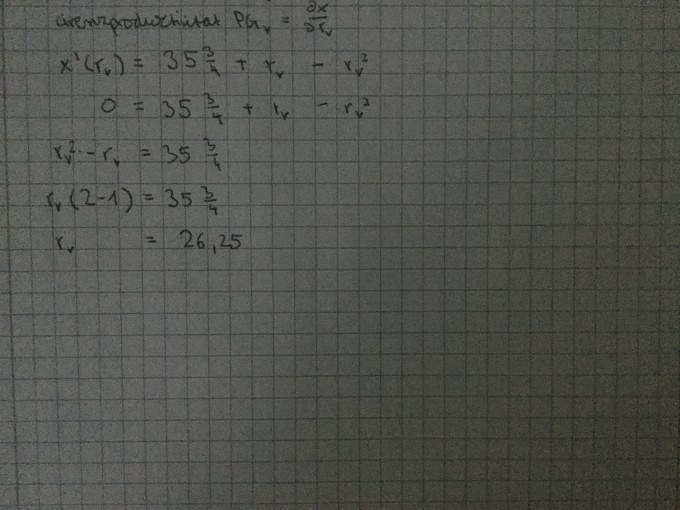 Grenzproduktivität PG_v = ∂x/∂r_v
x'(r_v) = 35 3/4 + r_v - r_v²
0 = 35 3/4 + r_v - r_v²
r_v² - r_v = 35 3/4
r_v (2-1) = 35 3/4
r_v = 26,25